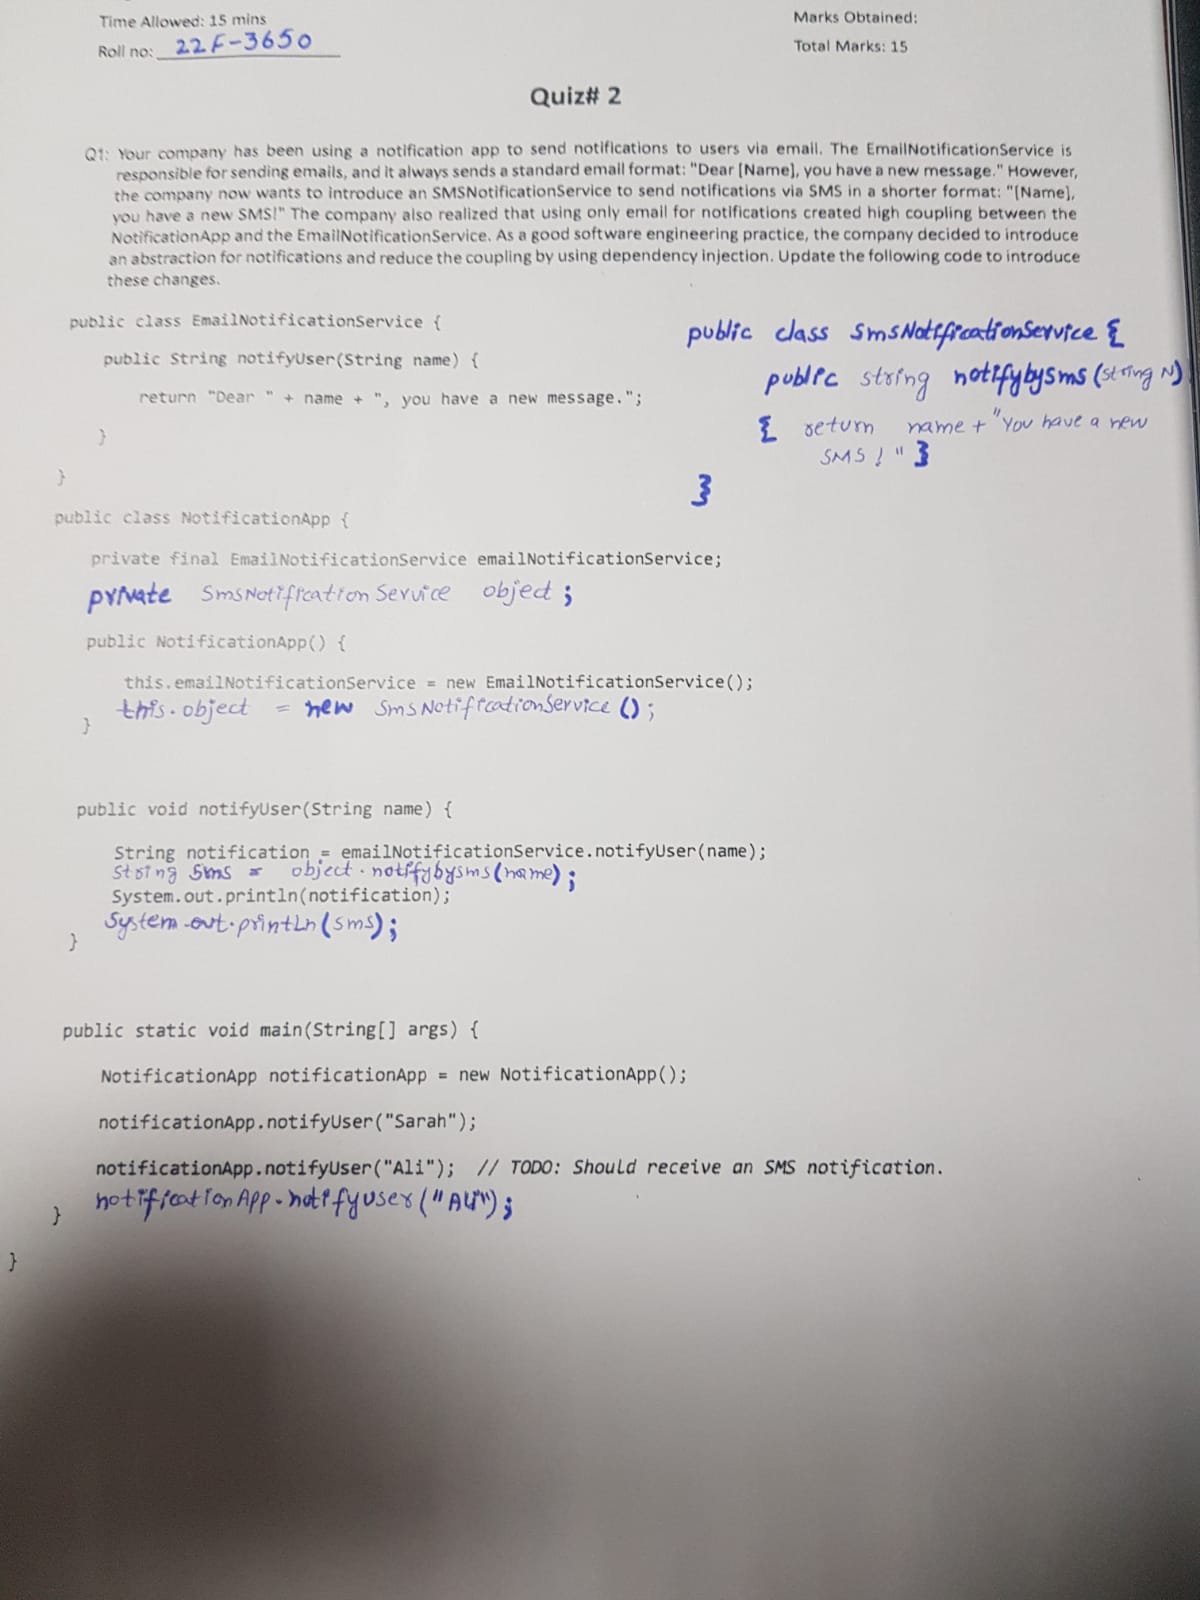 Time Allowed: 15 mins
Marks Obtained:
Roll no: 22F-3650
Total Marks: 15
Quiz# 2
Q1: Your company has been using a notification app to send notifications to users via email. The EmailNotificationService is
responsible for sending emails, and it always sends a standard email format: "Dear [Name], you have a new message." However,
the company now wants to introduce an SMSNotificationService to send notifications via SMS in a shorter format: "[Name],
you have a new SMS!" The company also realized that using only email for notifications created high coupling between the
NotificationApp and the EmailNotificationService. As a good software engineering practice, the company decided to introduce
an abstraction for notifications and reduce the coupling by using dependency injection. Update the following code to introduce
these changes.
public class EmailNotificationService {
public String notifyUser(String name) {
return "Dear " + name + ", you have a new message.";
}
}
public class SmsNotificationService {
public string notifybysms (string N)
{ return name + "You have a new
SMS ! " }
}
public class NotificationApp {
private final EmailNotificationService emailNotificationService;
private SmsNotification Service object ;
public NotificationApp() {
this.emailNotificationService = new EmailNotificationService();
this.object = new SmsNotificationService () ;
}
public void notifyUser(String name) {
String notification = emailNotificationService.notifyUser(name);
string sms = object . notifybysms (name) ;
System.out.println(notification);
System.out.printLn (sms) ;
}
public static void main(String[] args) {
NotificationApp notificationApp = new NotificationApp();
notificationApp.notifyUser("Sarah");
notificationApp.notifyUser("Ali"); // TODO: Should receive an SMS notification.
notification App . notifyuser ("Ali") ;
}
}